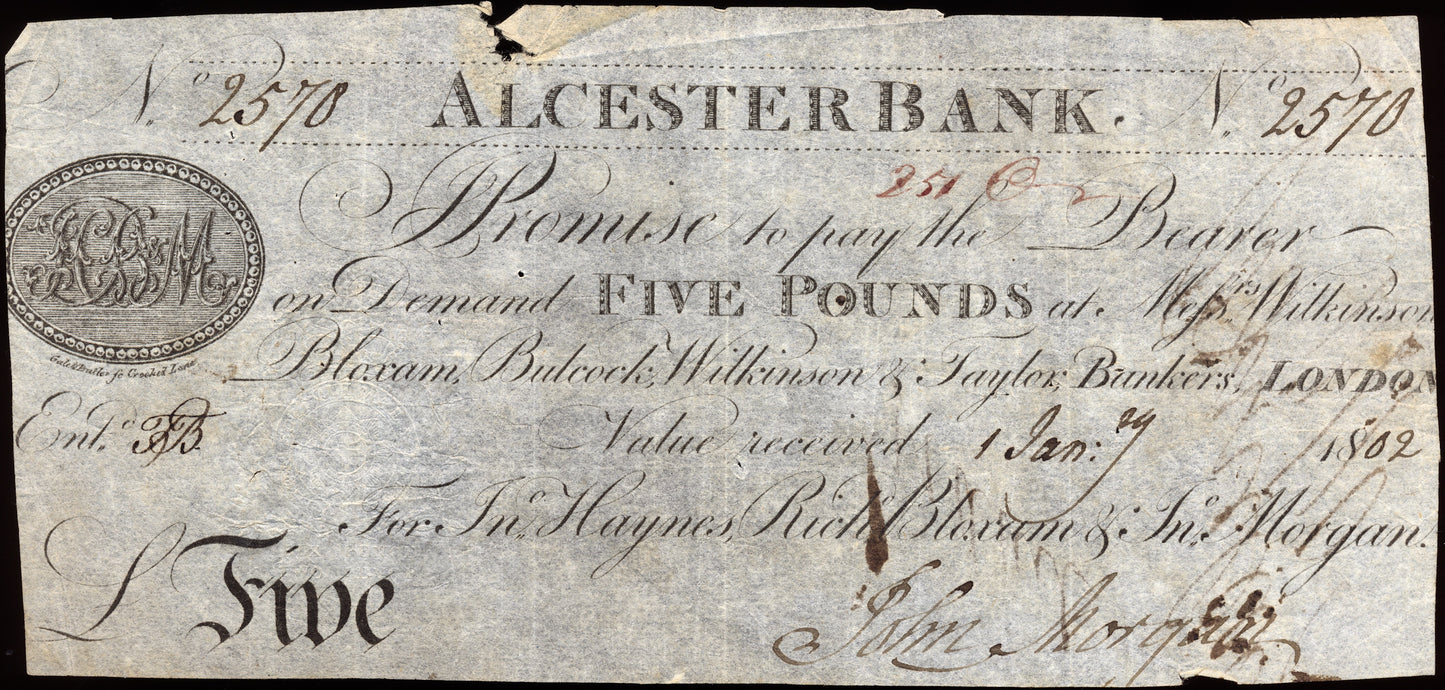 No. 2570 ALCESTER BANK. No. 2570
251
I Promise to pay the Bearer
on Demand FIVE POUNDS at Messrs. Wilkinson
Bloxam, Bulcock, Wilkinson & Taylor, Bankers, LONDON
Gale & Butler sc Crooked Lane
Entd.
Value received 1 Jan:ry 1802
For Jno. Haynes, Richd. Bloxam & Jno. Morgan.
£ Five
John Morgan